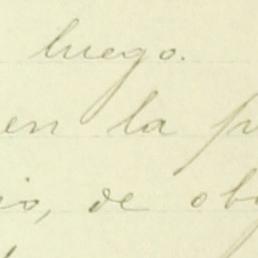 luego.
en la p
io, de ob